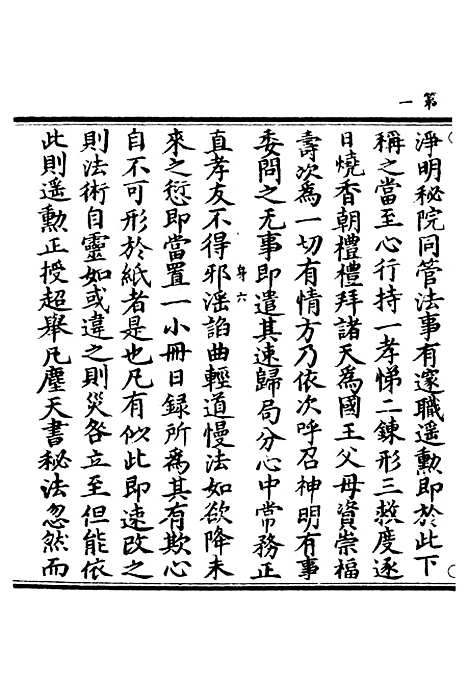 第一
淨明秘院同管法事有邃職遥勲即於此下
稱之當至心行持一孝悌二鍊形三救度逐
日燒香朝禮禮拜諸天為國王父母資崇福
壽次為一切有情方乃依次呼召神明有事
委問之无事即遣其速歸局分心中常務正
六
直孝友不得邪滛謟曲輕道慢法如欲降未
來之愆即當置一小冊日録所為其有欺心
自不可形於紙者是也凡有似此即速改之
則法術自靈如或違之則災咎立至但能依
此則遥勲正授超舉凡塵天書秘法忽然而